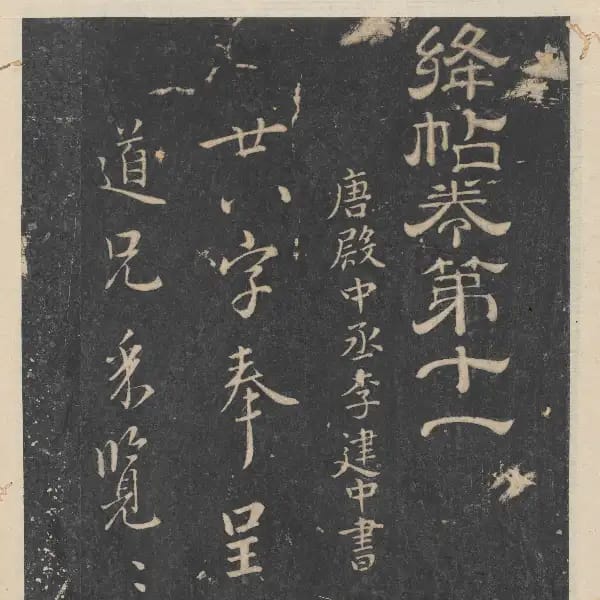 絳帖卷第十一
唐殿中丞李建中書
廿八字奉呈
道兄采覽〻